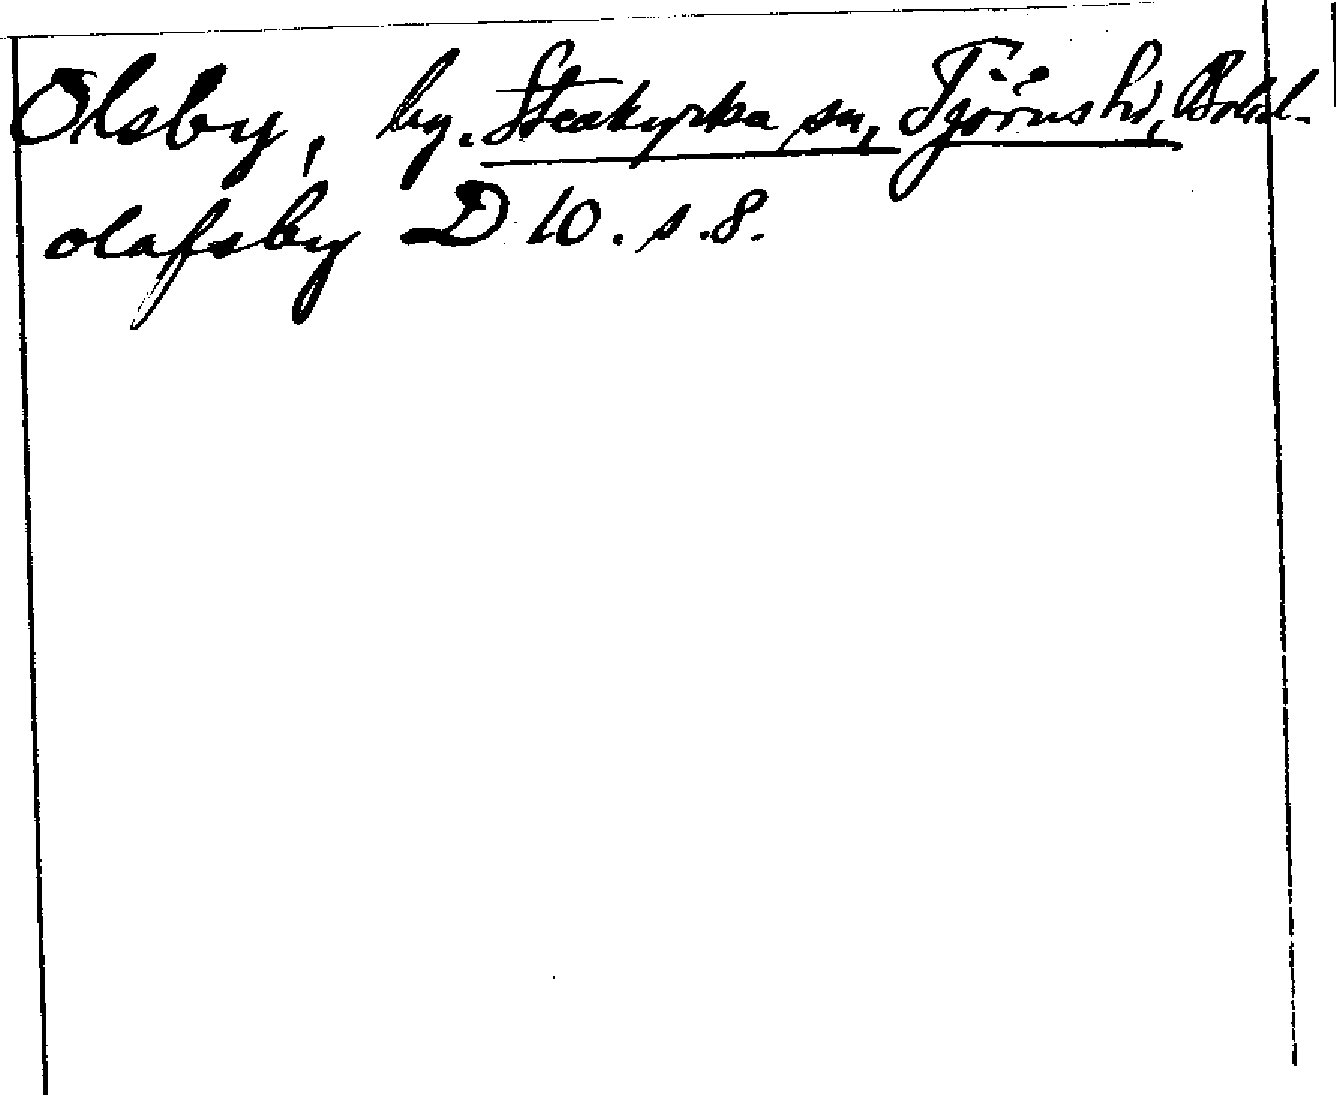 Olsby, by. Stenkyrka sn, Tjörns hd, Bohsl.
olafsby D 10. s. 8.